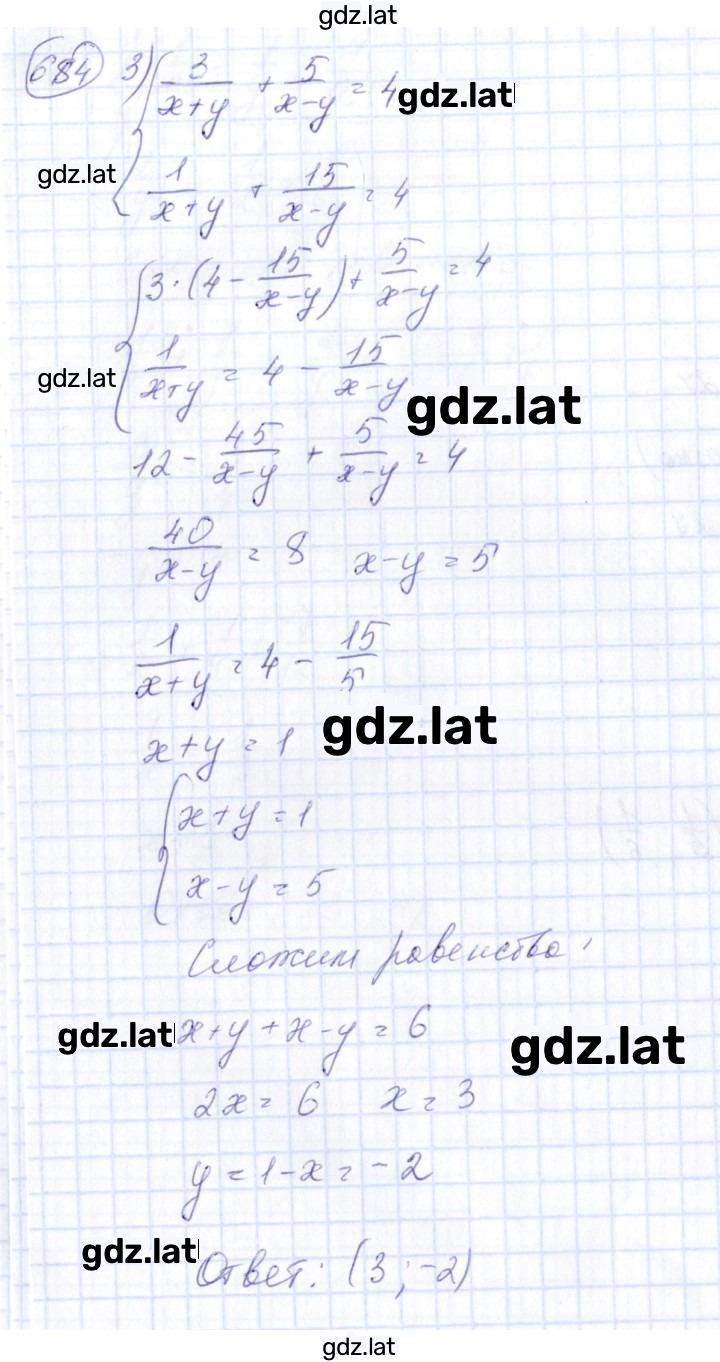 gdz.lat
684 3) { 3/(x+y) + 5/(x-y) = 4 gdz.lat
gdz.lat
1/(x+y) + 15/(x-y) = 4
{ 3·(4 - 15/(x-y)) + 5/(x-y) = 4
gdz.lat
1/(x+y) = 4 - 15/(x-y)
gdz.lat
12 - 45/(x-y) + 5/(x-y) = 4
40/(x-y) = 8 x-y = 5
1/(x+y) = 4 - 15/5
gdz.lat
x+y = 1
{ x+y = 1
x-y = 5
Сложим равенства:
gdz.lat x+y+x-y = 6 gdz.lat
2x = 6 x = 3
y = 1-x = -2
gdz.lat
Ответ: (3; -2)
gdz.lat